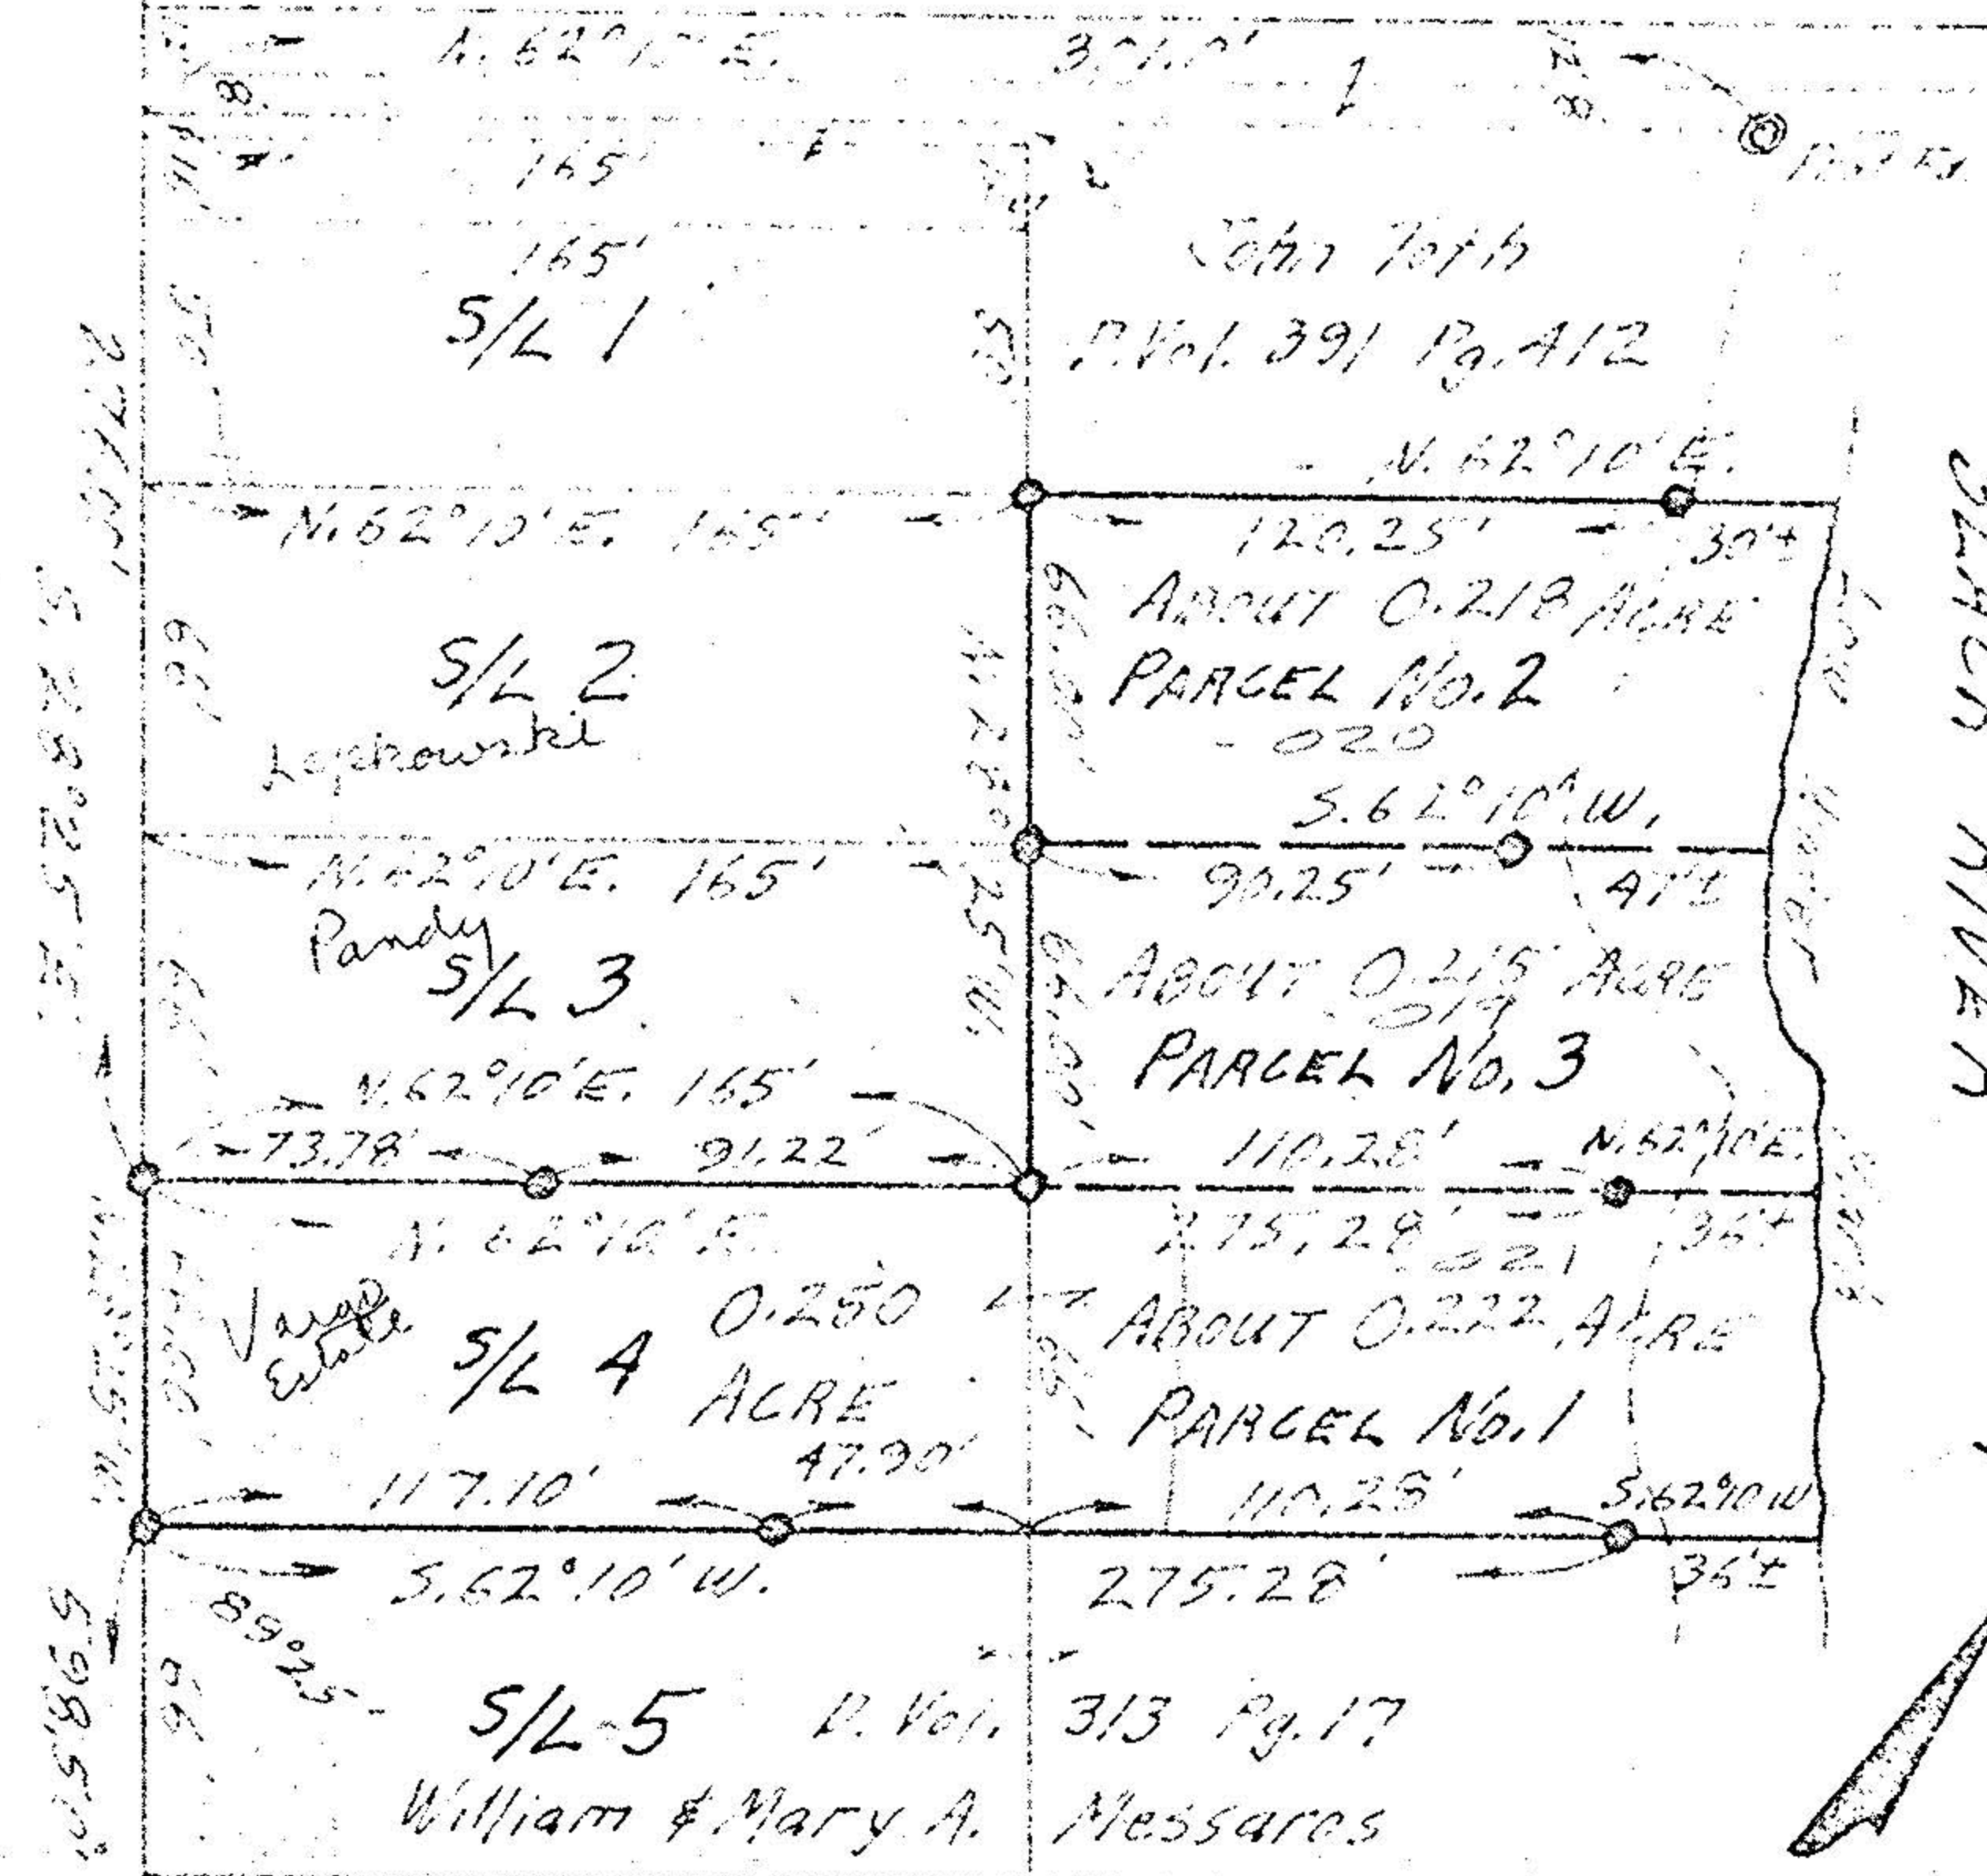 N. 62°10' E. 301.0'
165'
165'
S/L 1
John Toth
D. Vol. 391 Pg. 412
N. 62°10' E.
N. 62°10' E. 165'
120.25'
30'±
ABOUT 0.218 ACRE
PARCEL No. 2
- 020
66'
S/L 2
66.00'
S. 62°10' W.
N. 62°10' E. 165'
90.25'
47'±
Pandy
S/L 3
ABOUT 0.215 ACRE
019
PARCEL No. 3
66.00'
S. 28°25' E.
N. 28°25' W.
N. 62°10' E. 165'
73.78'
91.22'
110.28'
N. 62°10' E.
N. 62°10' E.
275.28'
36'±
021
Estate
S/L 4
0.250
ACRE
ABOUT 0.222 ACRE
PARCEL No. 1
117.10'
47.90'
110.28'
S. 62°10' W
S. 62°10' W.
275.28'
36'±
89°25'
66'
598.50'
S/L 5 D. Vol. 313 Pg. 17
William & Mary A. Messaros
RIVER